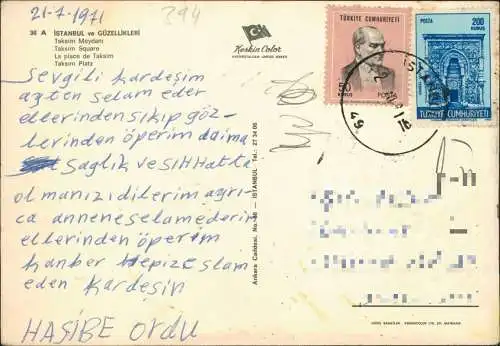 21-7-1971
394
36 A İSTANBUL ve GÜZELLİKLERİ
Taksim Meydanı
Taksim Square
La place de Taksim
Taksim Platz
Keskin Color
Sevgili kardeşim
azten selam eder
ellerinden sıkıp göz-
lerinden öperim daima
Sağlık ve SIHHatta
olmanızı dilerim ayrı-
ca annene selam ederim
ellerinden öperim
kanber Hepize slam
eden Kardeşin
HAŞİBE ORdU
Ankara Caddesi. No. — İSTANBUL Tel.: 27 34 06
TÜRKİYE CUMHURİYETİ
50
KURUŞ
POSTA
200
KURUŞ
TÜRKİYE CUMHURİYETİ